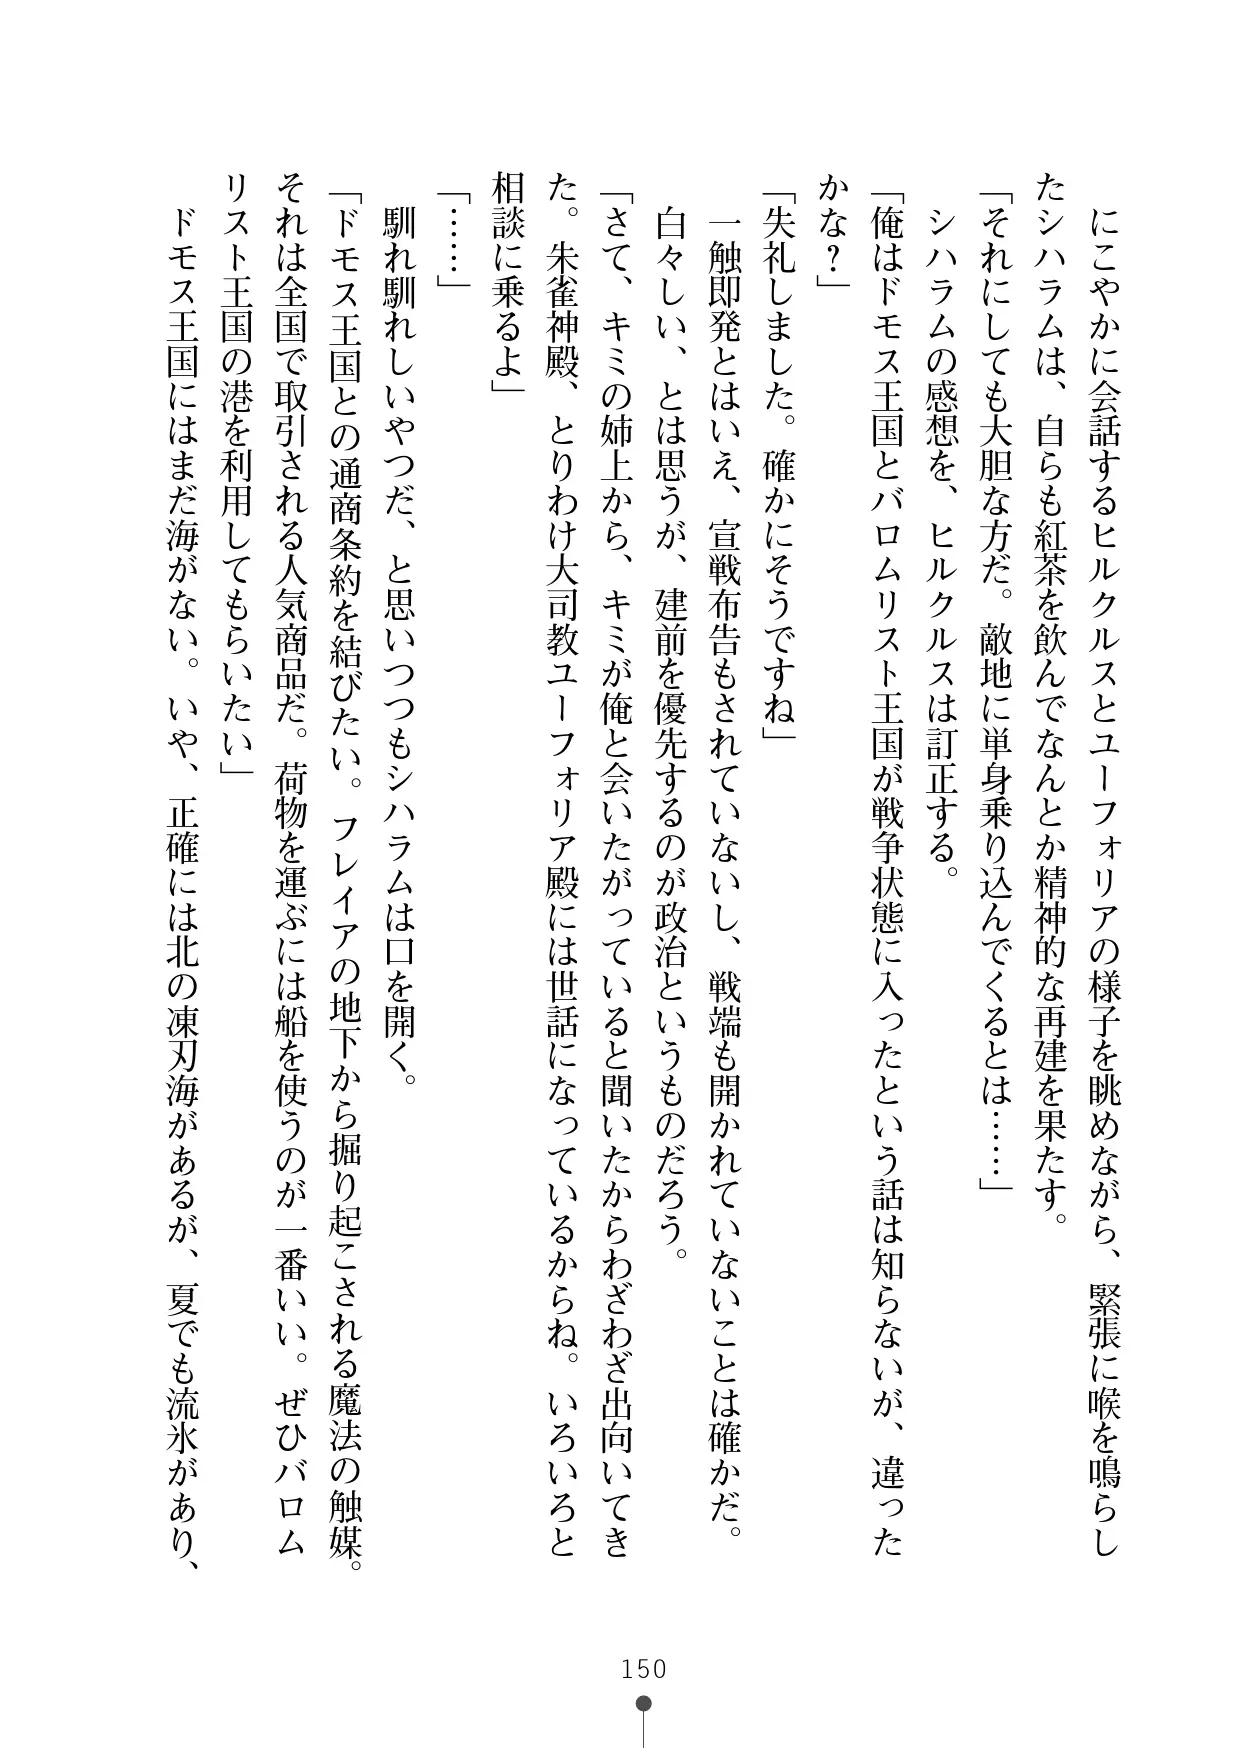 にこやかに会話するヒルクルスとユーフォリアの様子を眺めながら、緊張に喉を鳴らし
たシハラムは、自らも紅茶を飲んでなんとか精神的な再建を果たす。
「それにしても大胆な方だ。敵地に単身乗り込んでくるとは……」
シハラムの感想を、ヒルクルスは訂正する。
「俺はドモス王国とバロムリスト王国が戦争状態に入ったという話は知らないが、違った
かな？」
「失礼しました。確かにそうですね」
一触即発とはいえ、宣戦布告もされていないし、戦端も開かれていないことは確かだ。
白々しい、とは思うが、建前を優先するのが政治というものだろう。
「さて、キミの姉上から、キミが俺と会いたがっていると聞いたからわざわざ出向いてき
た。朱雀神殿、とりわけ大司教ユーフォリア殿には世話になっているからね。いろいろと
相談に乗るよ」
「……」
馴れ馴れしいやつだ、と思いつつもシハラムは口を開く。
「ドモス王国との通商条約を結びたい。フレイアの地下から掘り起こされる魔法の触媒。
それは全国で取引される人気商品だ。荷物を運ぶには船を使うのが一番いい。ぜひバロム
リスト王国の港を利用してもらいたい」
ドモス王国にはまだ海がない。いや、正確には北の凍刃海があるが、夏でも流氷があり、
150